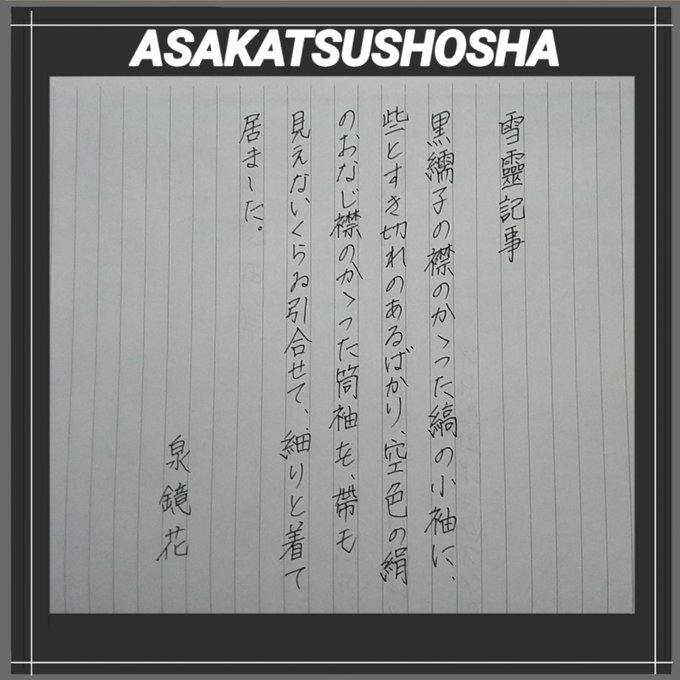 ASAKATSUSHOSHA
雪靈記事
黒繻子の襟のかゝった縞の小袖に、
些とすき切れのあるばかり、空色の絹
のおなじ襟のかゝった筒袖を、帯も
見えないくらゐ引合せて、細りと着て
居ました。
泉鏡花